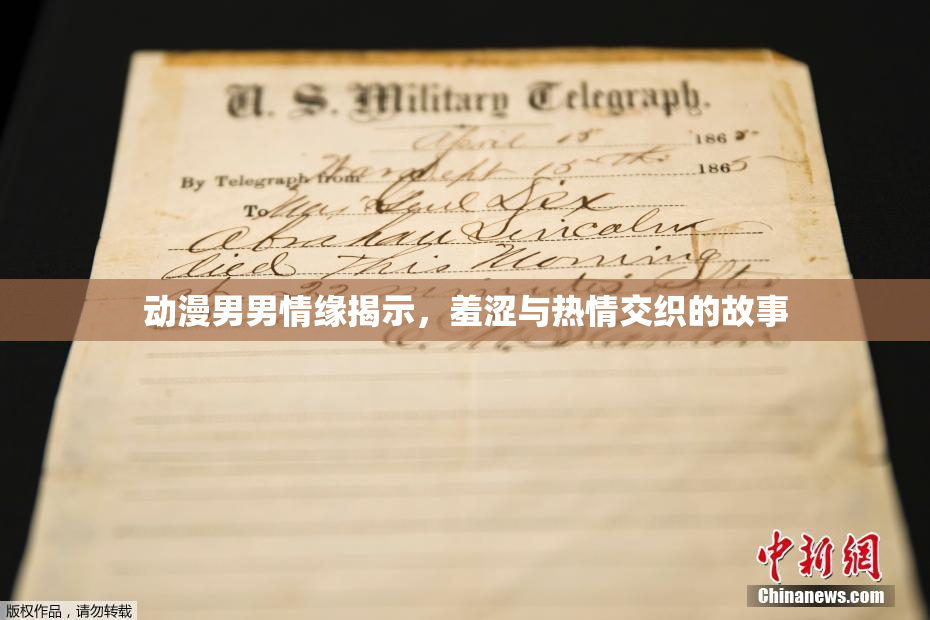 U. S. Military Telegraph.
April 15 1865
By Telegraph from War Dept 15th 1865
To Maj Genl Dix
Abraham Lincoln
died This Morning
at 22 minutes after
动漫男男情缘揭示，羞涩与热情交织的故事
E. M. Stanton
中新網
Chinanews.com
版权作品，请勿转载